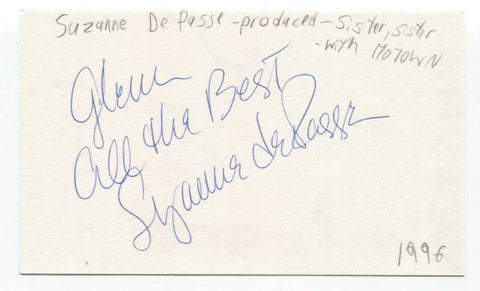 Suzanne De Passe - produced - Sister, sister
- with MOTOWN
Glenn
All the Best
Suzanne dePasse
1996